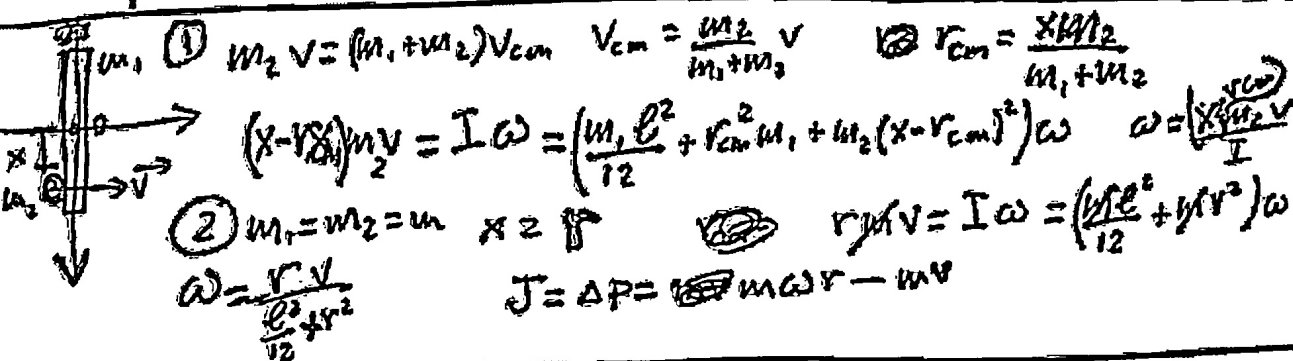 m₁ ① m₂ v = (m₁+m₂)Vcm Vcm = m₂/(m₁+m₂) v rcm = xm₂/(m₁+m₂)
0 (x-rcm)m₂v = Iω = (m₁ℓ²/12 + rcm²m₁ + m₂(x-rcm)²)ω ω = (x-rcm)m₂v/I
x
m₂ v
② m₁=m₂=m x = r rmv = Iω = (mℓ²/12 + mr²)ω
ω = rv/(ℓ²/12 + r²) J = ΔP = mωr - mv